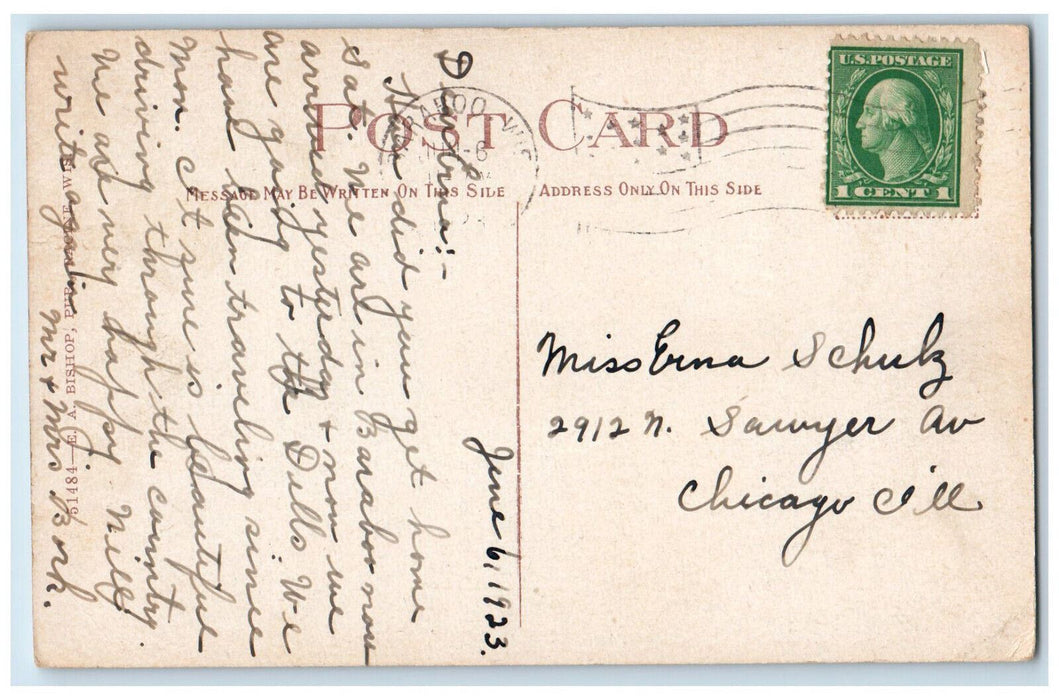 POST CARD
MESSAGE MAY BE WRITTEN ON THIS SIDE
ADDRESS ONLY ON THIS SIDE
U.S. POSTAGE
1 CENT 1
BARABOO WIS
June 6, 1923.
D Erna:-
How did you get home
Sat. We are in Baraboo now
arrived yesterday + now we
are going to the Dells. We
have been traveling since
Mon. It sure is beautiful
driving through the country.
We are very happy. Will
write again
Mr + Mrs Bork.
51484—E. A. BISHOP, WIS.
Miss Erna Schulz
2912 N. Sawyer Av
Chicago Ill